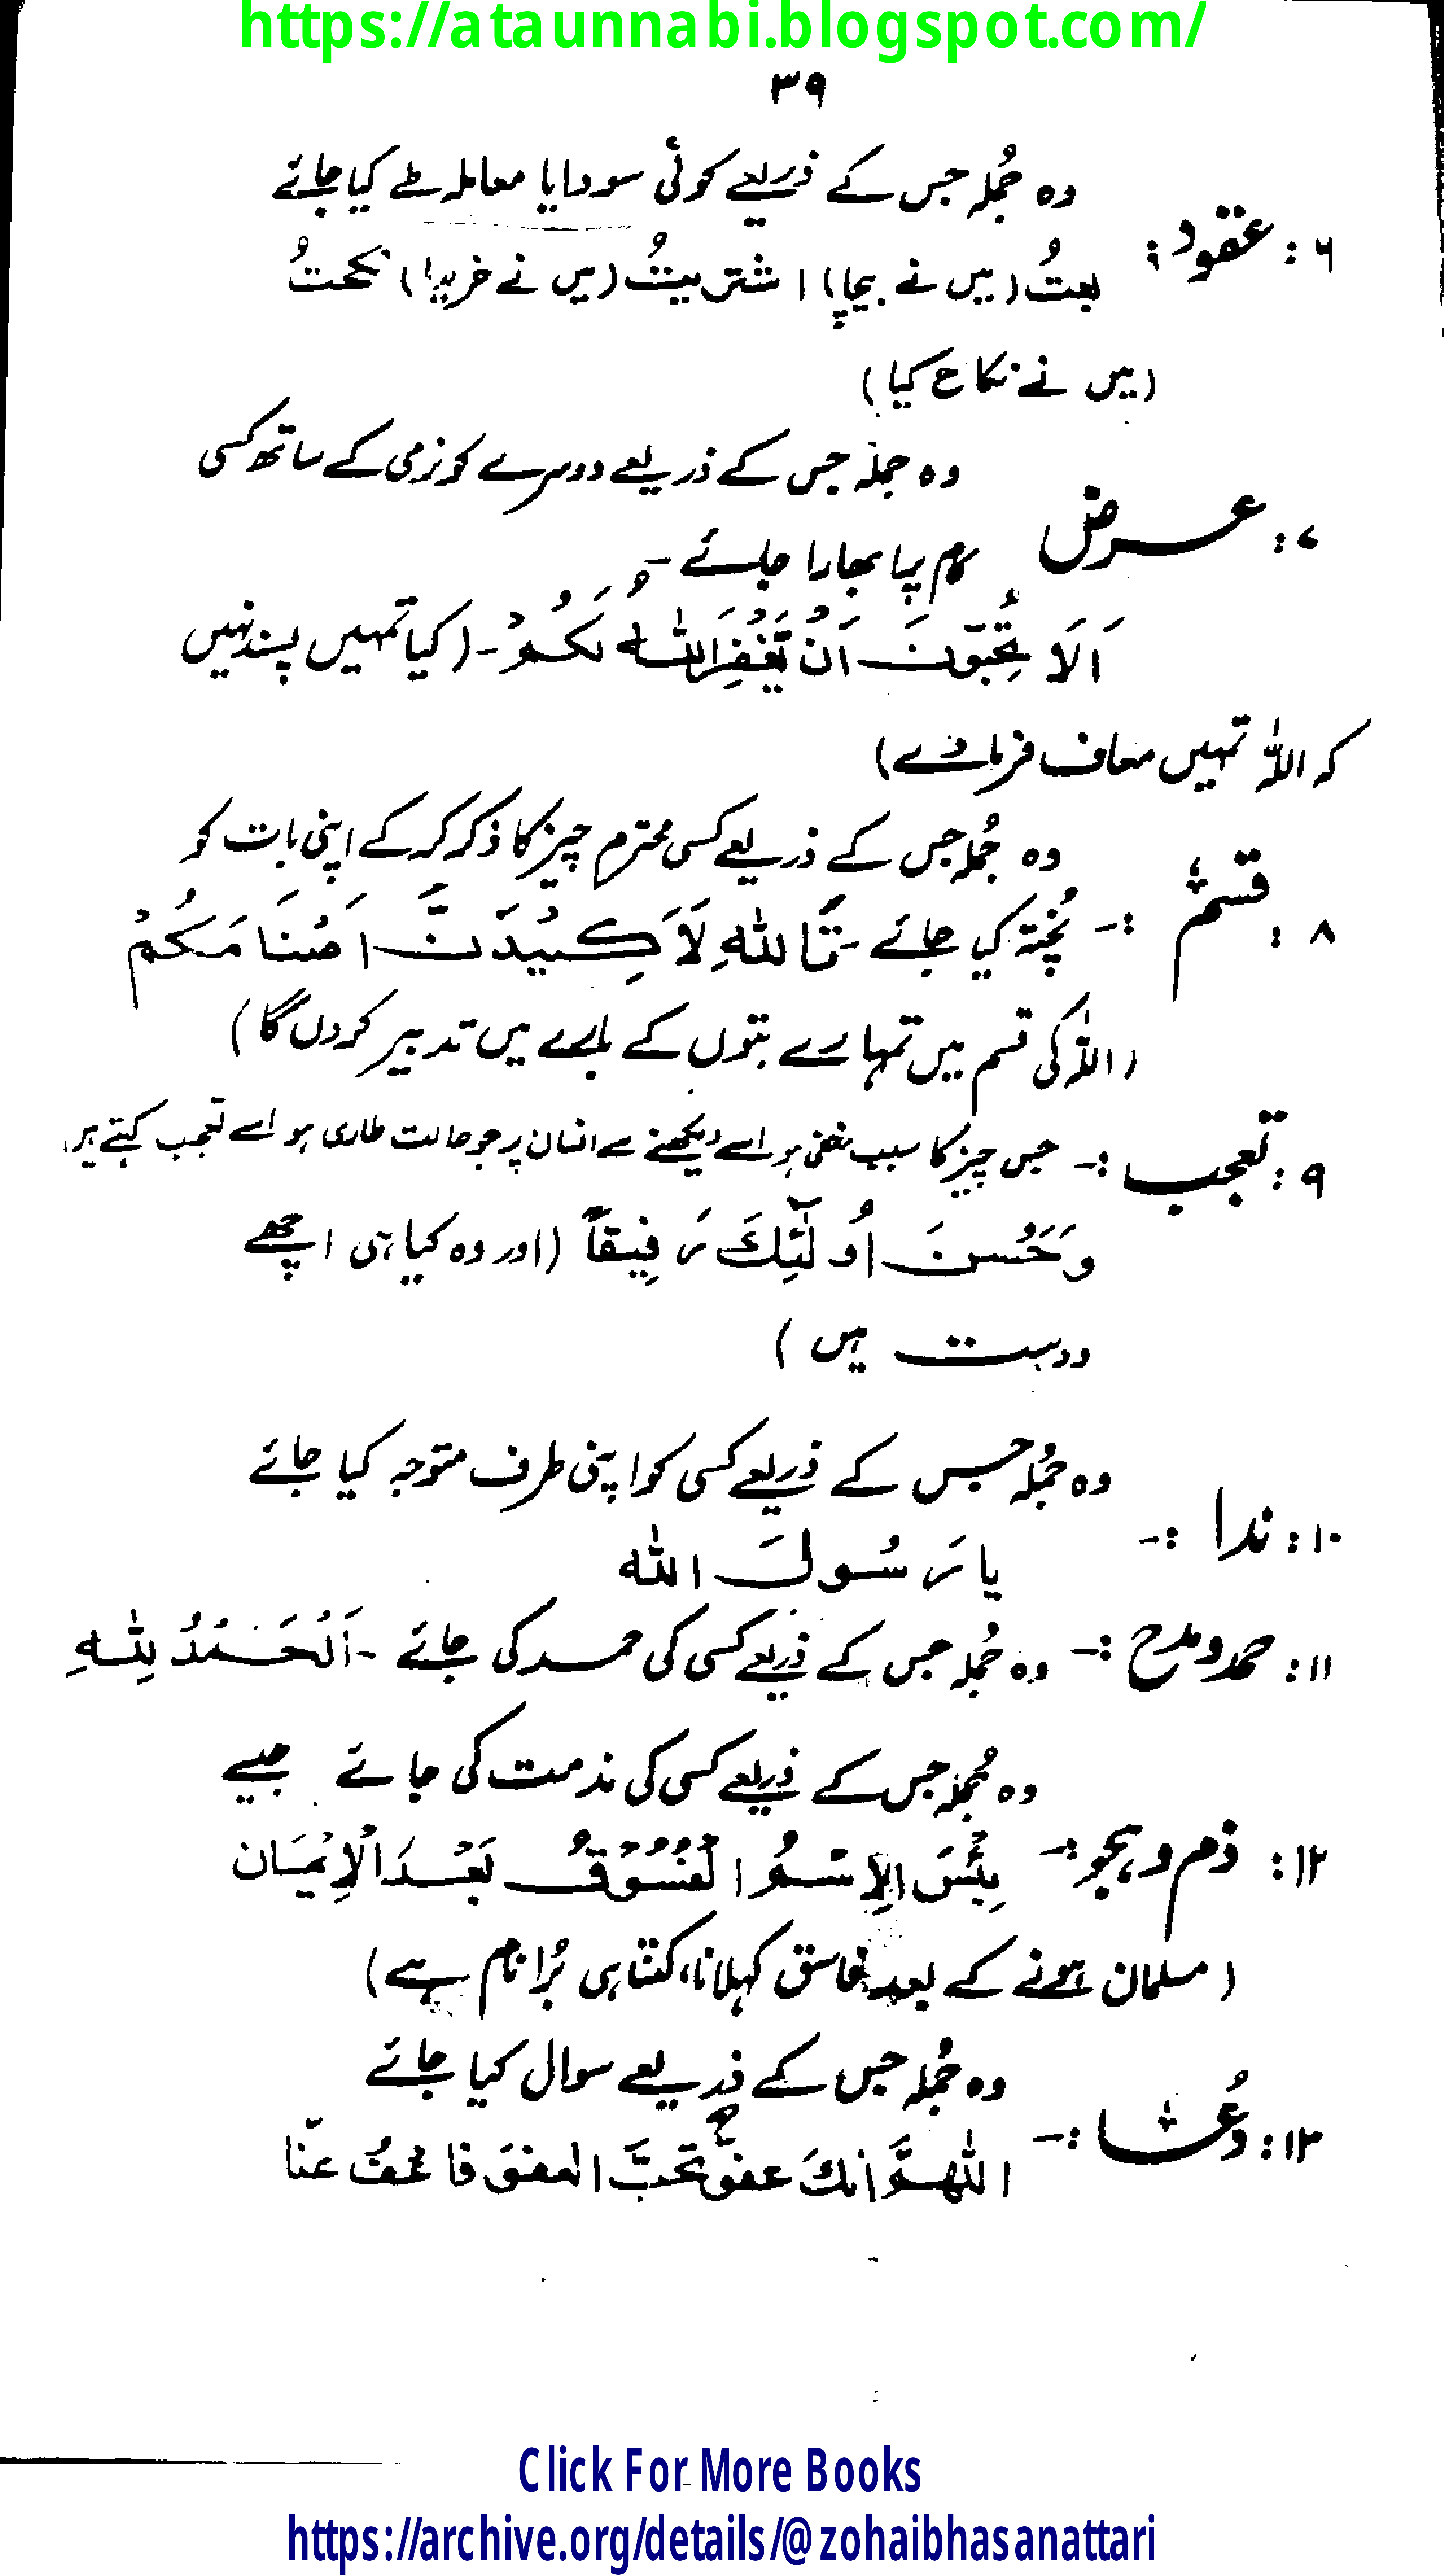 https://ataunnabi.blogspot.com/
۳۹
وہ جُملہ جس کے ذریعے کوئی سودا یا معاملہ طے کیا جائے
۶: عقود:
بعتُ (میں نے بیچا) اشتریتُ (میں نے خریدا) نکحتُ
(میں نے نکاح کیا)
وہ جملہ جس کے ذریعے دوسرے کو نرمی کے ساتھ کسی
۷: عرض
کام پہ ابھارا جائے -
اَلَا تُحِبُّوْنَ اَنْ یَّغْفِرَ اللّٰهُ لَكُمْ - (کیا تمہیں پسند نہیں
کہ اللہ تمہیں معاف فرما دے)
وہ جُملہ جس کے ذریعے کسی محترم چیز کا ذکر کر کے اپنی بات کو
۸: قسم :-
پُختہ کی جائے - تَاللّٰهِ لَاَكِیْدَنَّ اَصْنَامَكُمْ
(اللہ کی قسم میں تمہارے بتوں کے بارے میں تدبیر کردوں گا)
۹: تعجب :- جس چیز کا سبب مخفی ہو اسے دیکھنے سے انسان پر جو حالت طاری ہو اسے تعجب کہتے ہیں
وَحَسُنَ اُولٰٓئِكَ رَفِیْقاً (اور وہ کیا ہی اچھے
دوست ہیں)
وہ جُملہ جس کے ذریعے کسی کو اپنی طرف متوجہ کیا جائے
۱۰: ندا :-
یا رَسُولَ اللّٰه
۱۱: حمد و مدح :- وہ جُملہ جس کے ذریعے کسی کی حمد کی جائے - اَلْحَمْدُ لِلّٰهِ
وہ جُملہ جس کے ذریعے کسی کی مذمت کی جائے جیسے
۱۲: ذم و ہجو :- بِئْسَ الِاسْمُ الْفُسُوْقُ بَعْدَ الْاِیْمَان
(مسلمان ہونے کے بعد فاسق کہلانا، کتنا ہی بُرا نام ہے)
وہ جُملہ جس کے ذریعے سوال کیا جائے
۱۳: دُعا :-
اللّٰهمَّ اِنكَ عفوٌّ تحبُّ العفوَ فاعفُ عنّا
Click For More Books
https://archive.org/details/@zohaibhasanattari